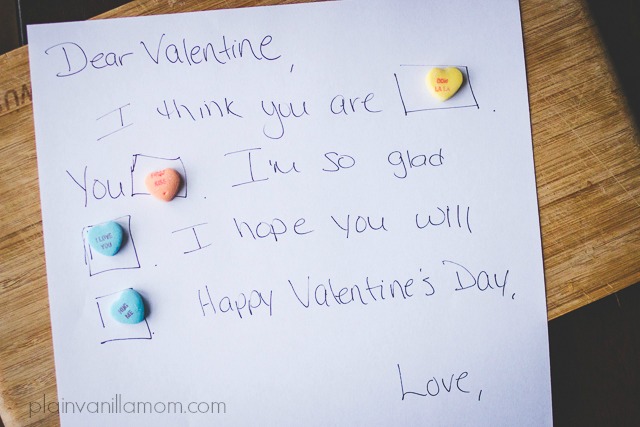 Dear Valentine,
I think you are OOH LA LA.
You . I'm so glad
I LOVE YOU. I hope you will
. Happy Valentine's Day,
Love,
plainvanillamom.com